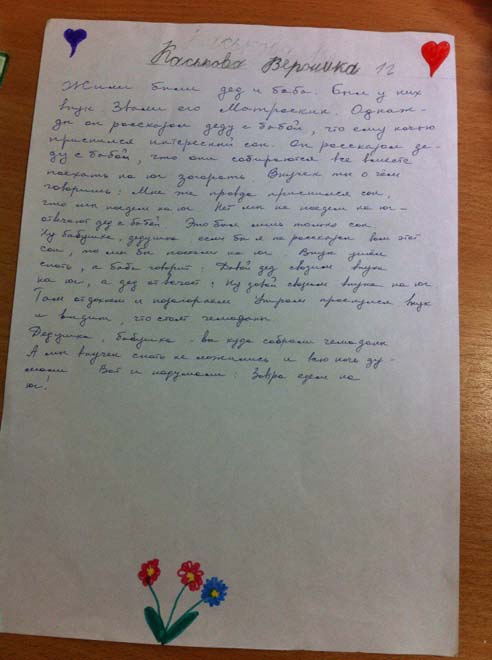 Каськова Вероника 12
Жили были дед и баба. Был у них
внук Звали его Матроскин. Однаж-
ды он рассказал деду с бабой, что ему ночью
приснился интересный сон. Он рассказал де-
ду с бабой, что они собираются все вместе
поехать на юг загорать. Внучек ты о чём
говоришь: Мне же правда приснился сон,
что мы поедем на юг Нет мы не поедем на юг-
отвечают дед с бабой Это был лишь только сон
Ну бабушка, дедушка если бы я не рассказал вам этот
сон, то мы бы поехали на юг. Внук ушёл
спать, а баба говорит: Давай дед свозим внука
на юг, а дед отвечает: Ну давай свозим внука на юг
Там отдохнем и позагораем Утром проснулся внук
и видит, что стоят чемоданы.
Дедушка, бабушка - вы куда собрали чемоданы
А мы внучек спать не ложились и всю ночь ду-
мали Вот и надумали: Завтра едем на
юг!